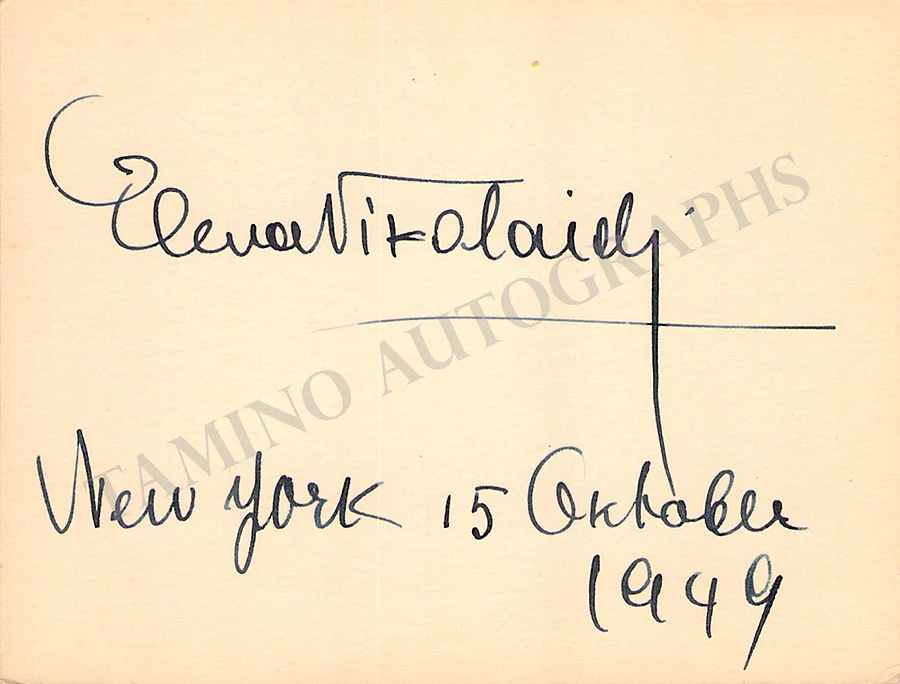 Elena Nikolaidi
TAMINO AUTOGRAPHS
New York 15 Oktober
1949